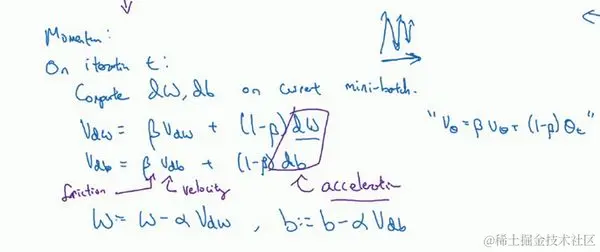 Momentum:
On iteration t:
Compute dW, db on current mini-batch.
Vdw = β Vdw + (1-β) dW
"Vθ = β Vθ + (1-β) θt"
Vdb = β Vdb + (1-β) db
friction ↗ velocity ↖ acceleration
W = W - α Vdw , b := b - α Vdb
@稀土掘金技术社区